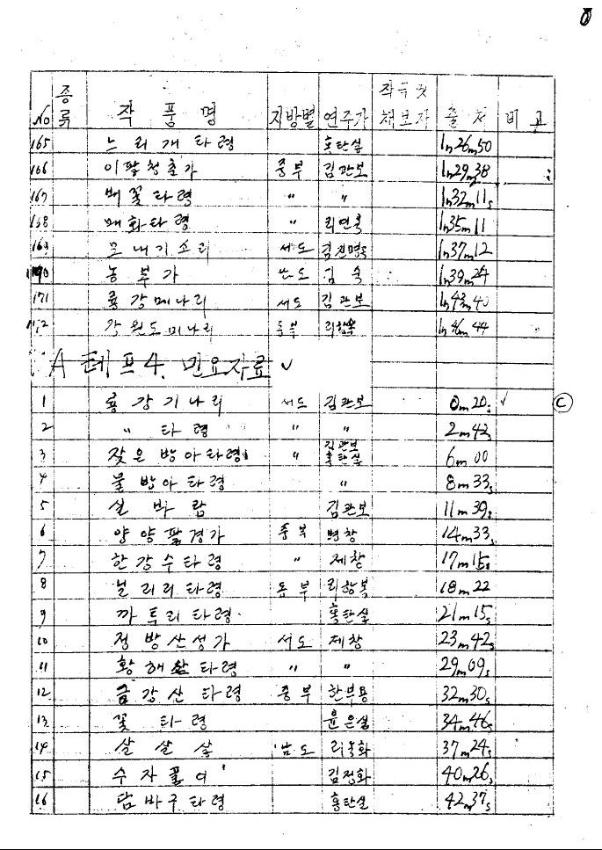 No 종류 작품명 지방별 연주가 작곡 및 채보자 출처 비고
165 느리개타령 홍탄실 1h26m50
166 이팔청춘가 중부 김관보 1h29m38
167 배꽃타령 〃 〃 1h32m11s
168 매화타령 〃 리연옥 1h35m11
169 모내기소리 서도 김진명 1h37m12
170 농부가 남도 김숙 1h39m24
171 룡강메나리 서도 김관보 1h43m40
172 강원도미나리 동부 1h46m44
A 테프4. 민요자료 ✓
1 룡강기나리 서도 김관보 0m20s ✓ ⓒ
2 〃 타령 〃 〃 2m42s
3 잦은방아타령 〃 김관보 홍탄실 6m00
4 물방아타령 〃 8m33s
5 실바람 김관보 11m39s
6 양양팔경가 중부 병창 14m33s
7 한강수타령 〃 제창 17m15s
8 닐리리타령 동부 리항복 18m22
9 까투리타령 홍탄실 21m15s
10 정방산성가 서도 제창 23m42s
11 황해살타령 〃 〃 29m09s
12 금강산타령 중부 한부용 32m30s
13 꽃타령 윤은실 34m46s
14 살살살 남도 리옥화 37m24s
15 수자풀이 김정화 40m26s
16 담바구타령 홍탄실 42m37s